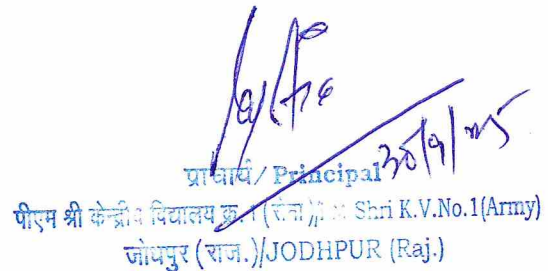 30/9/25
प्राचार्य/ Principal
पीएम श्री केन्द्रीय विद्यालय क्र.1 (सेना)/ Shri K.V.No.1(Army)
जोधपुर (राज.)/JODHPUR (Raj.)